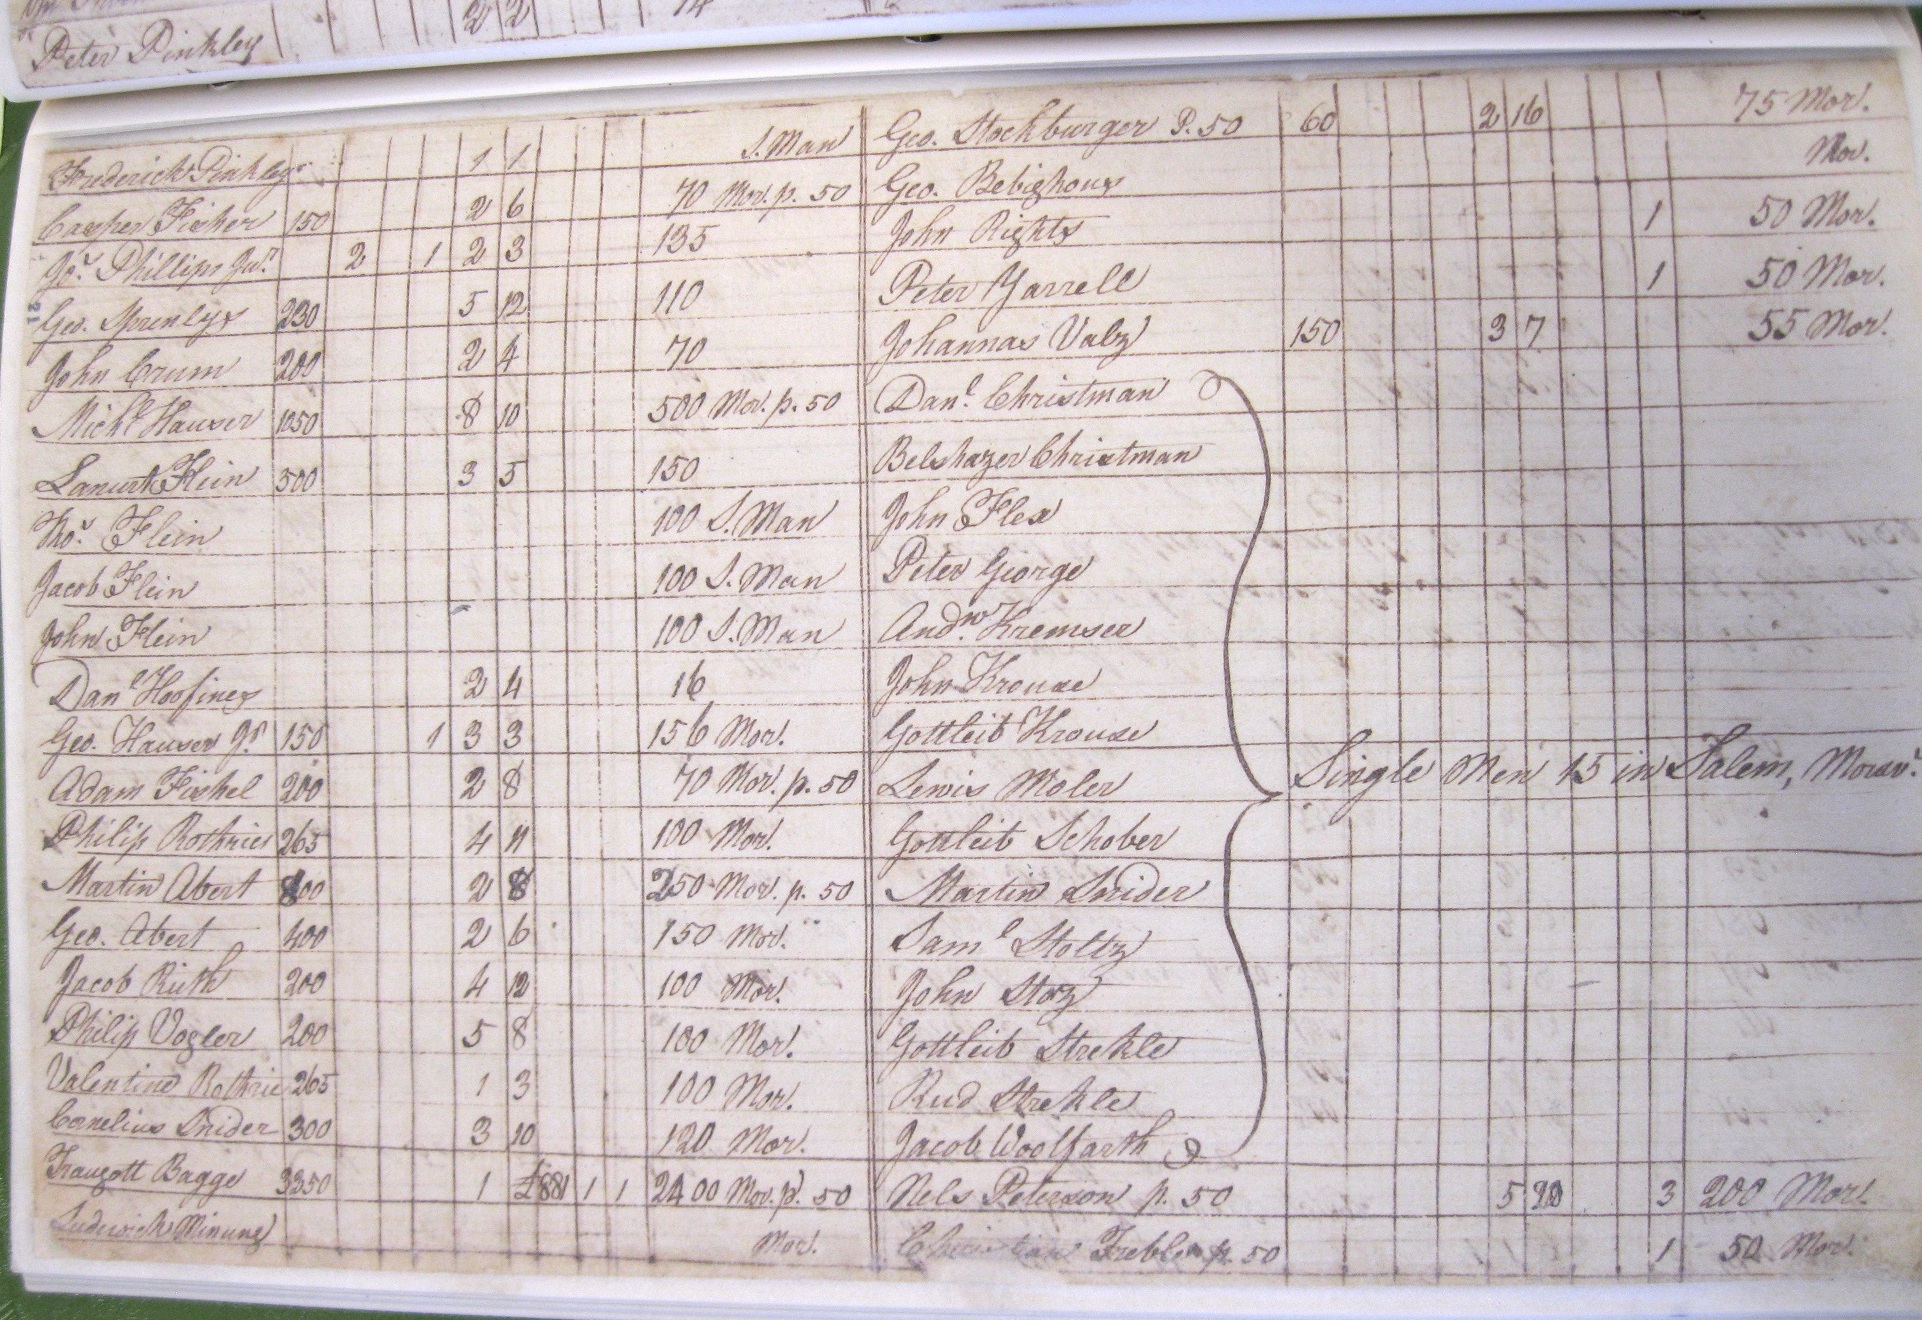 2 2 14
Peter Pinkley
Frederick Pinkley 1 1 S. Man
Casper Fisher 150 2 6 70 Mor. p. 50
Jos. Phillips Junr. 2 1 2 3 135
Geo. Sprenlys 230 5 12 110
John Crum 200 2 4 70
Michl. Hauser 1050 8 10 500 Mor. p. 50
Flein 500 3 5 150
Thos. Flein 100 S. Man
Jacob Flein 100 S. Man
John Flein 100 S. Man
Danl. Hoofines 2 4 16
Geo. Hauser Jr. 150 1 3 3 156 Mor.
Adam Fishel 200 2 8 70 Mor. p. 50
Philip Rothries 265 4 11 100 Mor.
Martin Abert 800 2 8 250 Mor. p. 50
Geo. Abert 400 2 6 150 Mor.
Jacob Rüth 200 4 12 100 Mor.
Philip Vogler 200 5 8 100 Mor.
Valentine Rothrie 265 1 3 100 Mor.
Cornelius Snider 300 3 10 120 Mor.
Traugott Bagge 3350 1 £881 1 1 2400 Mor. p. 50
Ludwich Minung Mor.
Geo. Stockburger P. 50 60 2 16 75 Mor.
Geo. Bebighous Mor.
John Rights 1 50 Mor.
Peter Yarrell 1 50 Mor.
Johannas Valz 150 3 7 55 Mor.
Danl. Christman
Belshazer Christman
John Flex
Peter George
Andw. Kremser
John Krouse
Gottleib Krouse
Lewis Moler
Single Men 15 in Salem, Morav.
Gottleib Schober
Martin Snider
Saml. Stoltz
John Stoz
Gottleib Strekle
Rud Strekle
Jacob Woolfarth
Nels Peterson p. 50 5 3 200 Mor.
Christian Freble p. 50 1 50 Mor.